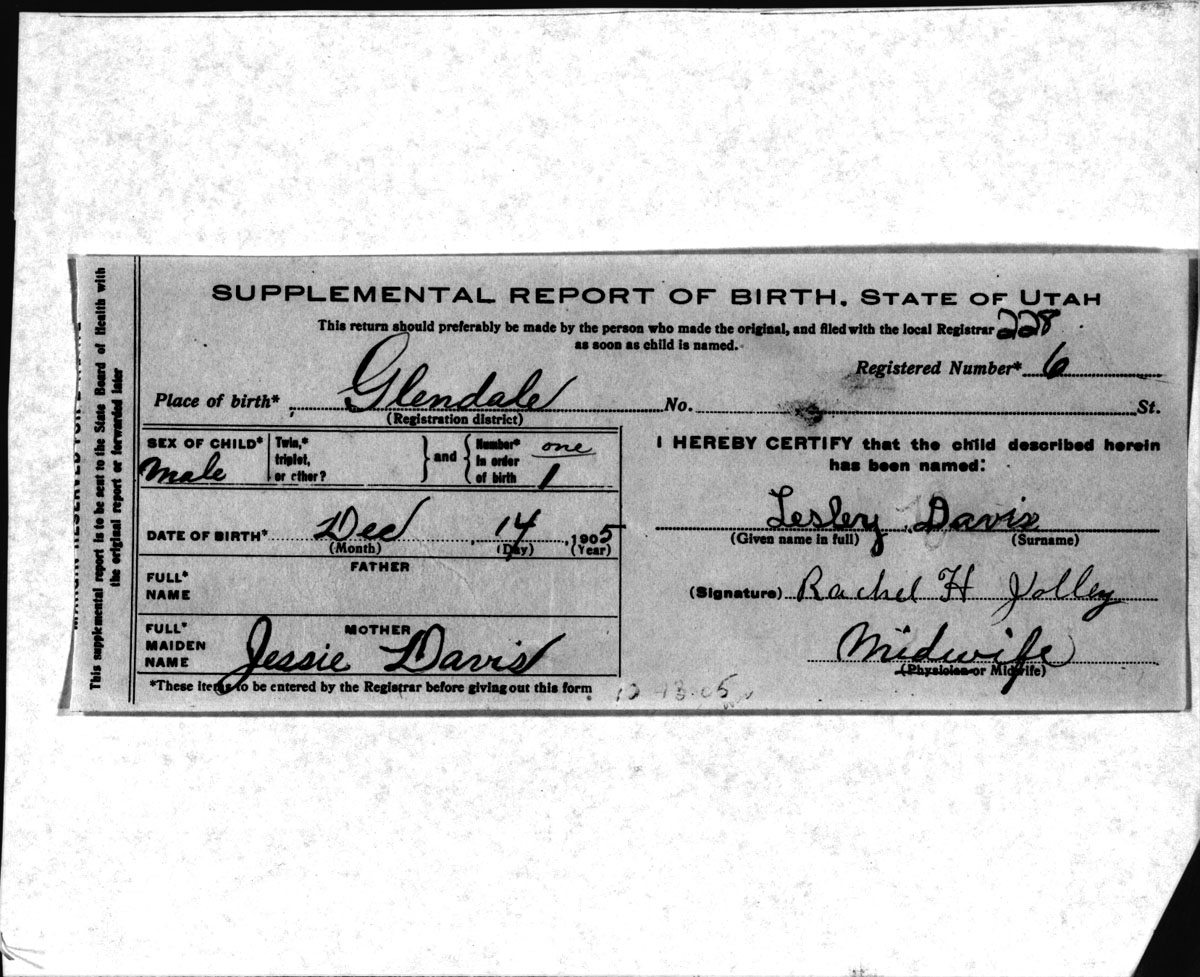 This supplemental report is to be sent to the State Board of Health with
the original report or forwarded later
SUPPLEMENTAL REPORT OF BIRTH. STATE OF UTAH
This return should preferably be made by the person who made the original, and filed with the local Registrar 228
as soon as child is named.
Registered Number* 6
Place of birth* Glendale No. St.
(Registration district)
SEX OF CHILD* Male
Twin,* triplet, or other? } and { Number* in order of birth one 1
DATE OF BIRTH* Dec 14, 1905
(Month) (Day) (Year)
FATHER
FULL* NAME
MOTHER
FULL* MAIDEN NAME Jessie Davis
*These items to be entered by the Registrar before giving out this form
I HEREBY CERTIFY that the child described herein
has been named:
Lesley Davis
(Given name in full) (Surname)
(Signature) Rachel H Jolley
Midwife
(Physician or Midwife)